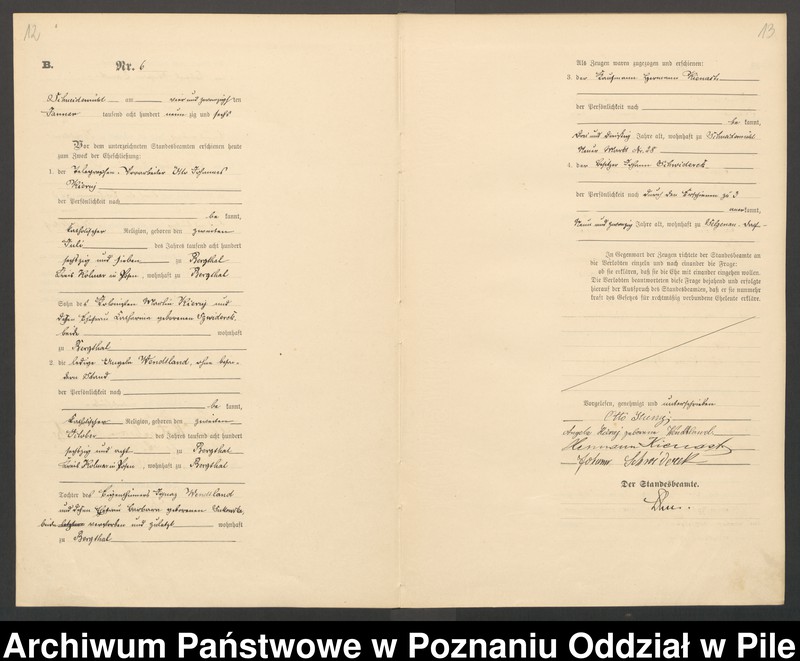 12
B.
Nr. 6
Schneidemühl am vier und zwanzigsten
Januar tausend acht hundert neun zig und sechs
Vor dem unterzeichneten Standesbeamten erschienen heute
zum Zweck der Eheschließung:
1. der Telegraphen-Vorarbeiter Otto Johannes
der Persönlichkeit nach
be kannt,
katholischer Religion, geboren den zweiten
Juli des Jahres tausend acht hundert
sechszig und sieben zu Bergthal
Kreis Kolmar in Posen, wohnhaft zu Bergthal
Sohn des Kolonisten Martin und
dessen Ehefrau Catharina geborenen
beide wohnhaft
zu Bergthal
2. die ledige Angela Wendtland, ohne beson-
dern Stand
der Persönlichkeit nach
be kannt,
katholischer Religion, geboren den zweiten
Oktober des Jahres tausend acht hundert
sechszig und acht zu Bergthal
Kreis Kolmar in Posen, wohnhaft zu Bergthal
Tochter des Eigenthümers Ignaz Wendtland
und dessen Ehefrau Barbara geborenen
beide verstorben und zuletzt wohnhaft
zu Bergthal
13
Als Zeugen waren zugezogen und erschienen:
3. der Kaufmann Hermann Kienast
der Persönlichkeit nach
be kannt,
drei und dreißig Jahre alt, wohnhaft zu Schneidemühl
Neuer Markt Nr. 28
4. der Besitzer Johann Schwiderek
der Persönlichkeit nach durch den Erschienenen zu 3
aner kannt,
neun und zwanzig Jahre alt, wohnhaft zu
In Gegenwart der Zeugen richtete der Standesbeamte an
die Verlobten einzeln und nach einander die Frage:
ob sie erklären, daß sie die Ehe mit einander eingehen wollen.
Die Verlobten beantworteten diese Frage bejahend und erfolgte
hierauf der Ausspruch des Standesbeamten, daß er sie nunmehr
kraft des Gesetzes für rechtmäßig verbundene Eheleute erkläre.
Vorgelesen, genehmigt und unterschrieben
Otto
Angela geborene Wendtland
Hermann Kienast
Johann Schwiderek
Der Standesbeamte.
Archiwum Państwowe w Poznaniu Oddział w Pile